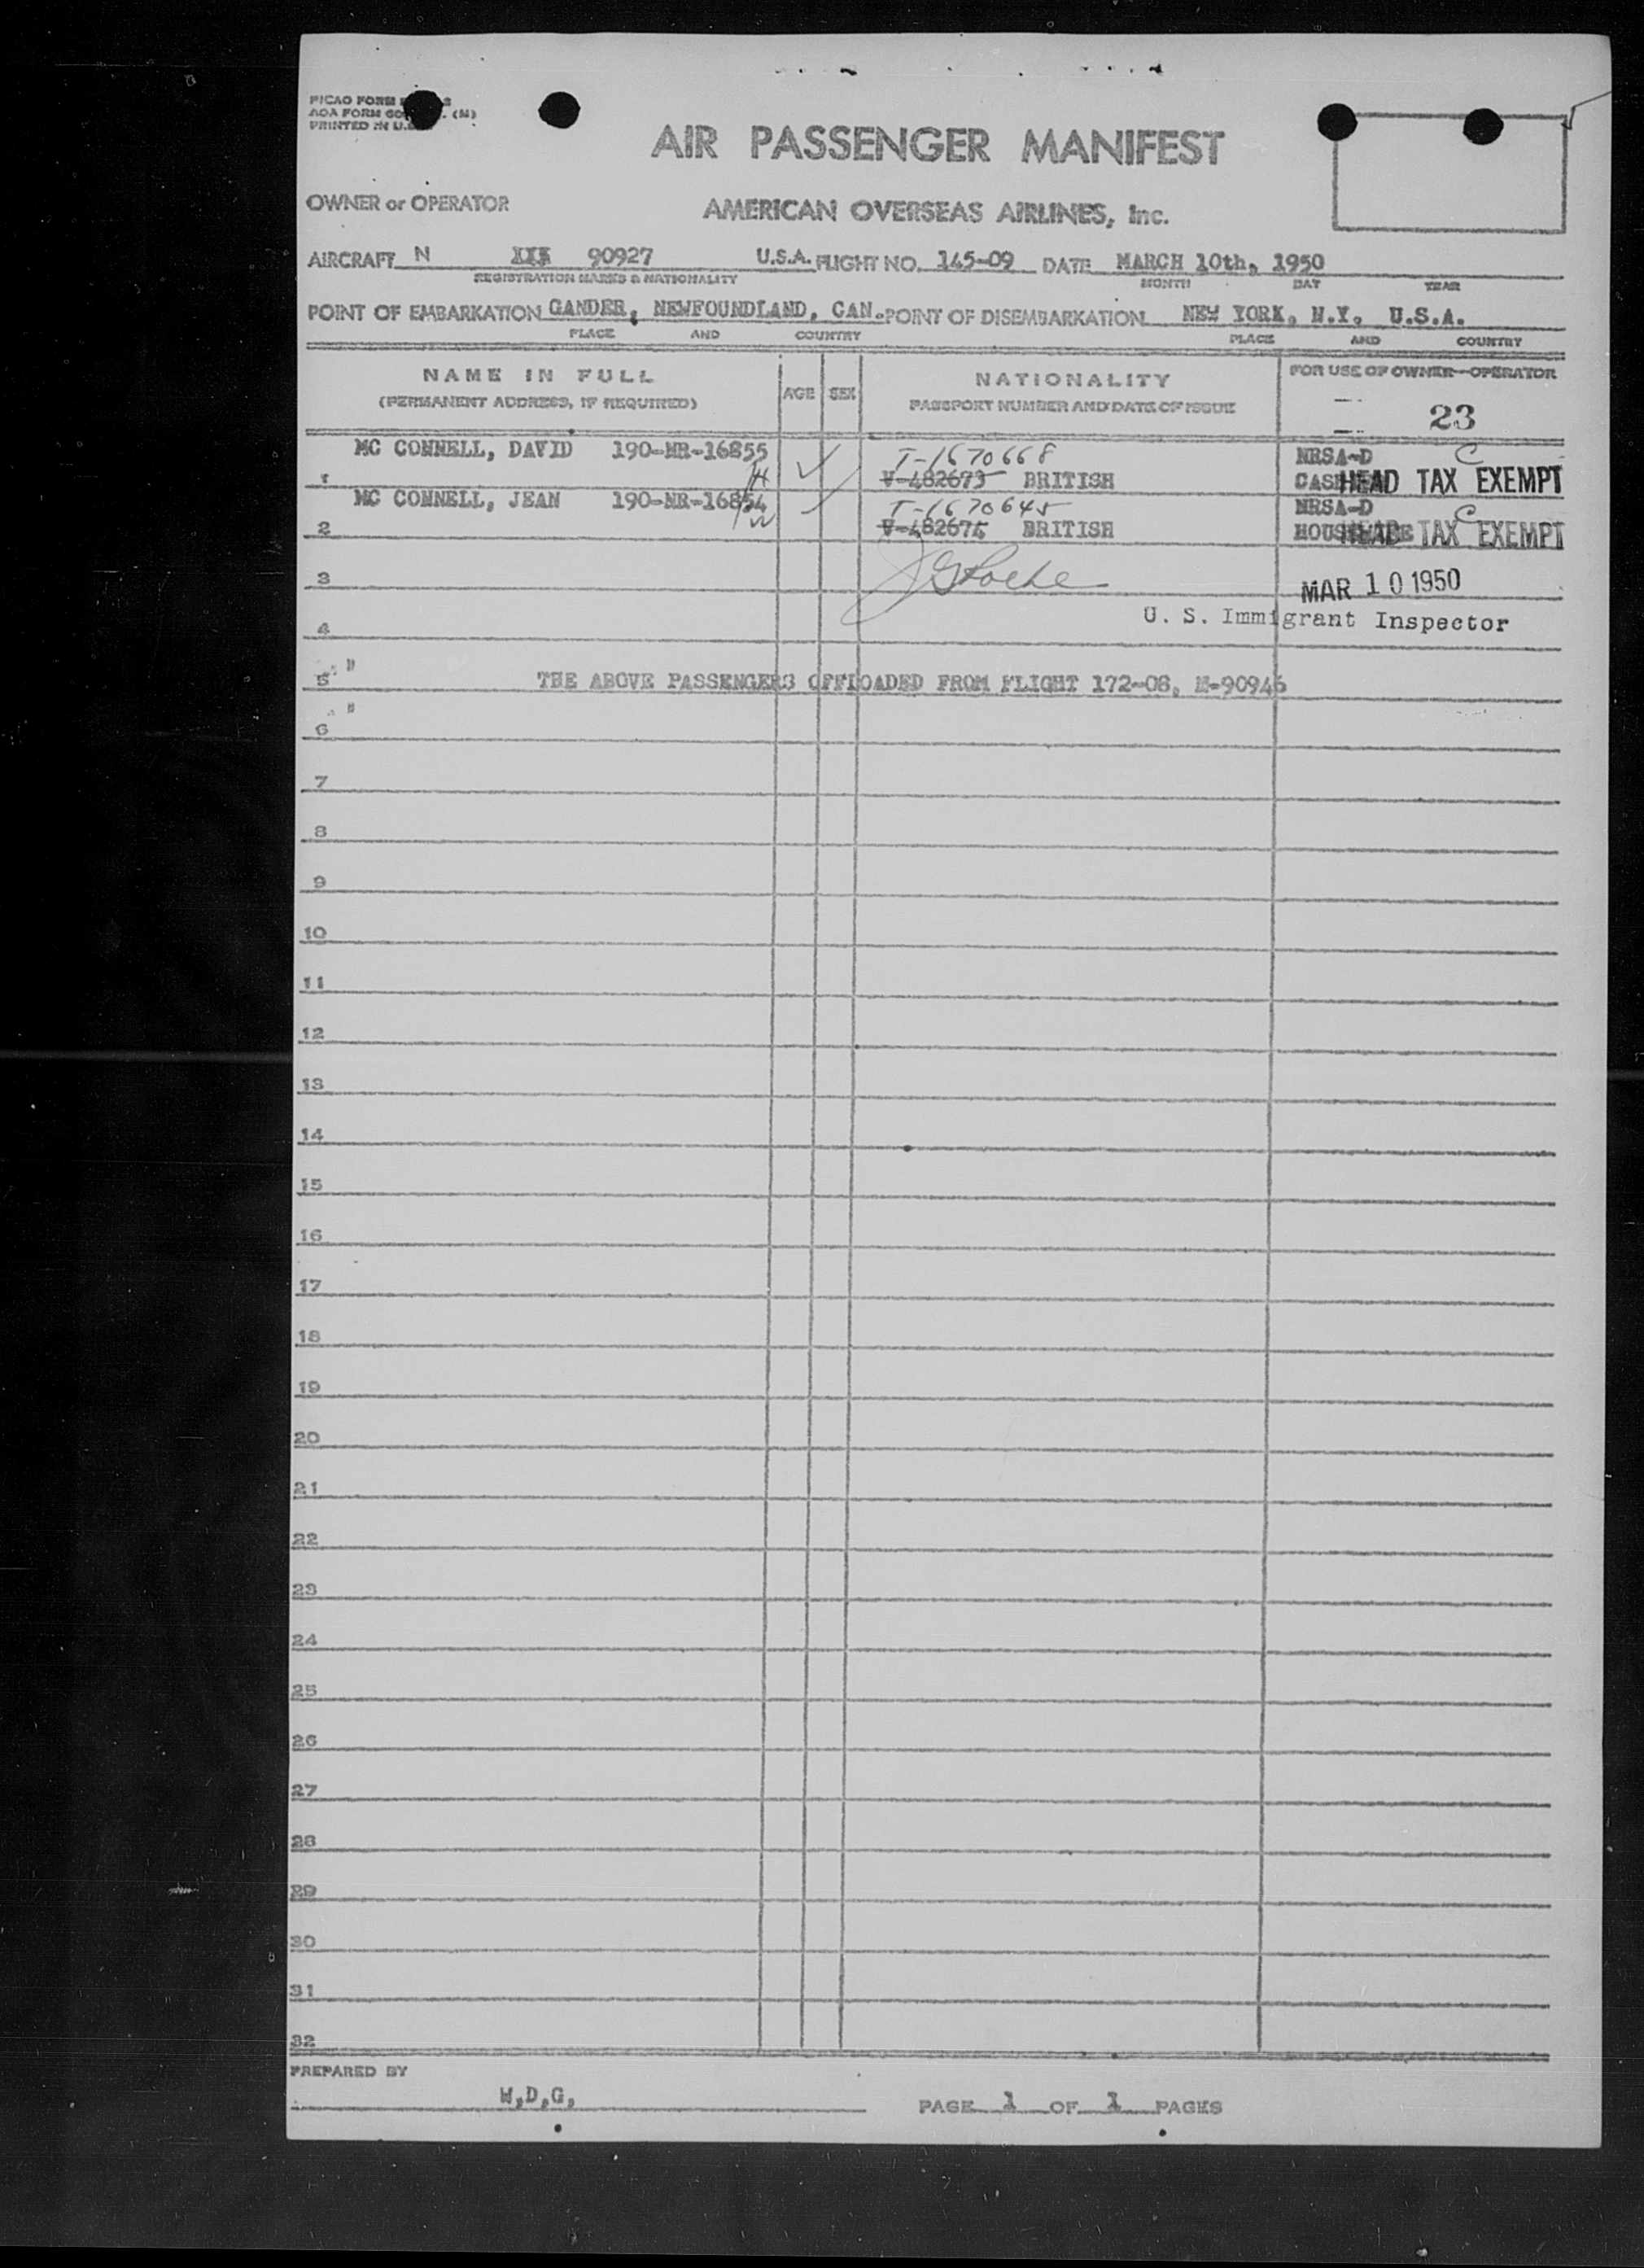 PICAO FORM
AOA FORM (M)
PRINTED IN U.S.
AIR PASSENGER MANIFEST
OWNER or OPERATOR AMERICAN OVERSEAS AIRLINES, Inc.
AIRCRAFT N XXX 90927 U.S.A. FLIGHT NO. 145-09 DATE MARCH 10th, 1950
REGISTRATION MARKS & NATIONALITY MONTH DAY YEAR
POINT OF EMBARKATION GANDER, NEWFOUNDLAND, CAN. POINT OF DISEMBARKATION NEW YORK, N.Y. U.S.A.
PLACE AND COUNTRY PLACE AND COUNTRY
NAME IN FULL AGE SEX NATIONALITY FOR USE OF OWNER-OPERATOR
(PERMANENT ADDRESS, IF REQUIRED) PASSPORT NUMBER AND DATE OF ISSUE
23
MC CONNELL, DAVID 190-NR-16855 T-1670668 NRSA-D C
1 V-482673 BRITISH HEAD TAX EXEMPT
MC CONNELL, JEAN 190-NR-16854 T-1670645 NRSA-D C
2 BRITISH HEAD TAX EXEMPT
3 MAR 10 1950
U. S. Immigrant Inspector
4
5 THE ABOVE PASSENGERS OFFLOADED FROM FLIGHT 172-08, N-90946
6
7
8
9
10
11
12
13
14
15
16
17
18
19
20
21
22
23
24
25
26
27
28
29
30
31
32
PREPARED BY
W,D,G, PAGE 1 OF 1 PAGES